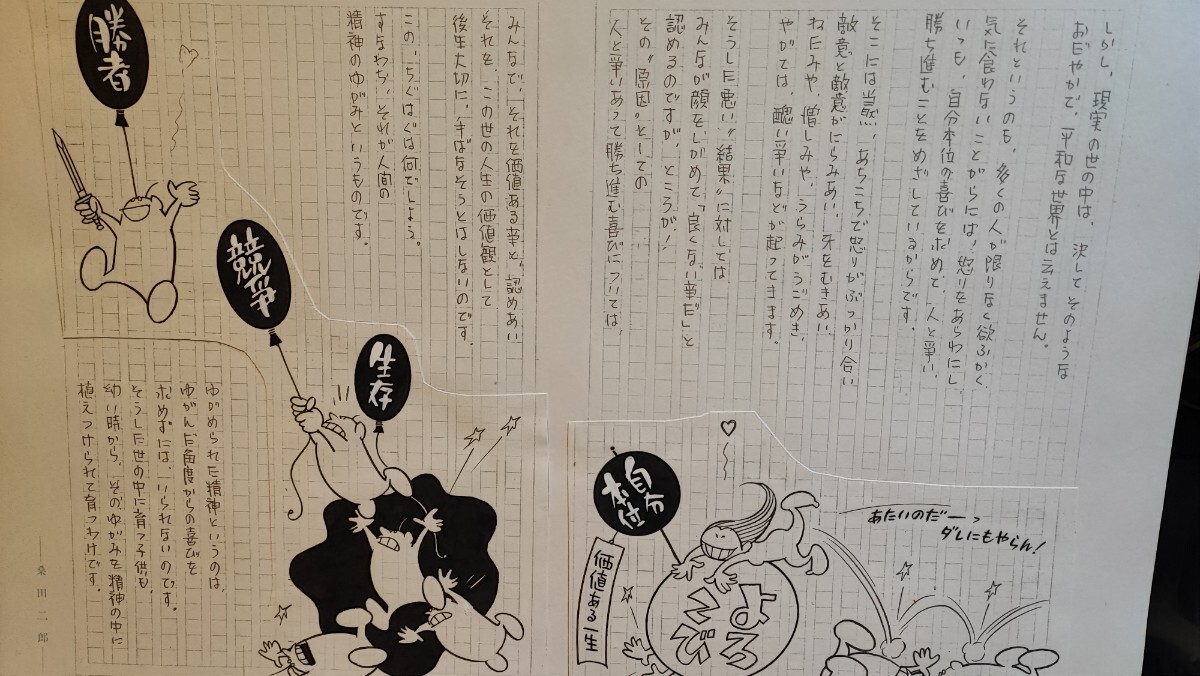 しかし、現実の世の中は、決してそのような
おだやかで、平和な世界とは云えません。
それというのも、多くの人が限りなく欲ふかく、
気に食わないことがらには、怒りをあらわにし、
いつも、自分本位の喜びを求めて、人と争い、
勝ち進むことをめざしているからです。
そこには当然、あちこちで怒りがぶっかり合い
敵意と敵意がにらみあい、牙をむきあい、
ねたみや、憎しみや、うらみがうごめき、
やがては、醜い争いなどが起ってきます。
そうした悪い〝結果〟に対しては
みんなが顔をしかめて「良くない事だ」と
認めるのですが、ところが!
その〝原因〟としての
人と争いあって勝ち進む喜びについては、
あたいのだーっ
ダレにもやらん!
自分
本位
価値ある一生
よろ
こび
みんなで、それを価値ある事と、認めあい
それを、この世の人生の価値観として
後生大切に、手ばなそうとはしないのです。
この、ちぐはぐは何でしょう。
すなわち、それが人間の
精神のゆがみというものです。
勝者
競争
生存
ゆがめられた精神というのは、
ゆがんだ角度からの喜びを
求めずには、いられないのです。
そうした世の中に育つ子供も、
幼い時から、そのゆがみを精神の中に
植えつけられて育つわけです。
桑田二郎